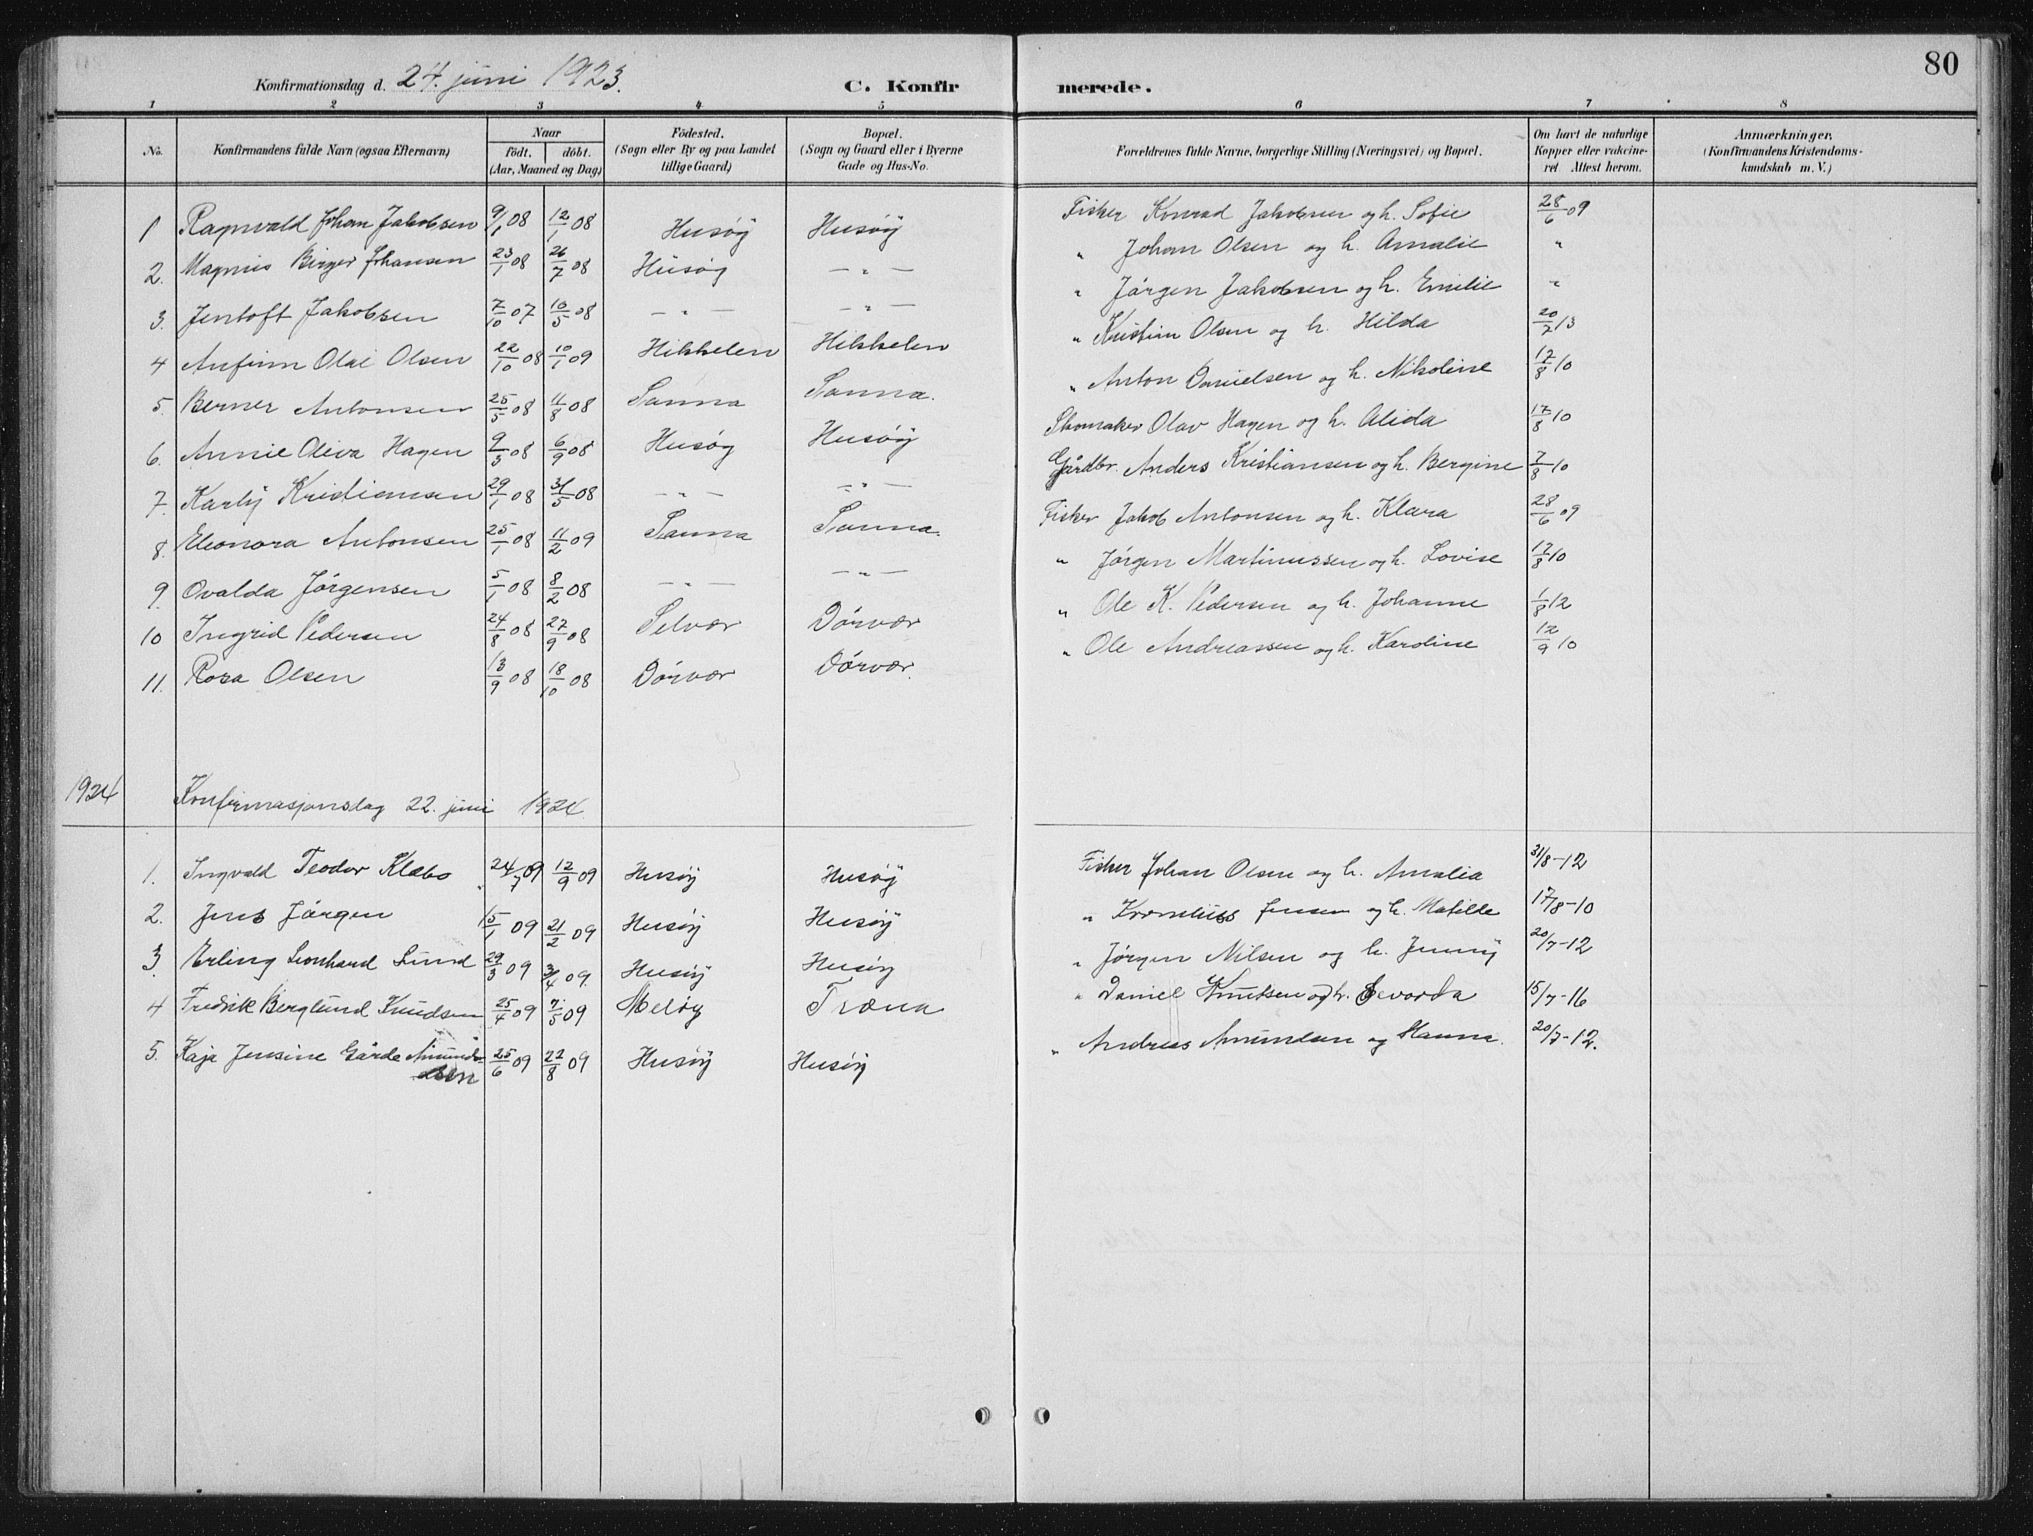 80
Konfirmationsdag d. 24. juni 1923. C. Konfirmerede.
1 2 3 4 5 6 7 8
No. Konfirmandens fulde Navn (ogsaa Efternavn) Naar födt. döbt. (Aar, Maaned og Dag) Födested. (Sogn eller By og paa Landet tillige Gaard) Bopæl. (Sogn og Gaard eller i Byerne Gade og Hus-No. Forældrenes fulde Navne, borgerlige Stilling (Næringsvei) og Bopæl. Om havt de naturlige Kopper eller vakcineret Attest herom. Anmærkninger. (Konfirmandens Kristendomskundskab m. V.)
1 Ragnvald Johan Jakobsen 9/1 08 12/1 08 Husøy Husøy Fisker Konrad Jakobsen og h. Sofie 28/6 09
2. Magnus Birger Johansen 23/1 08 26/7 08 Husøy — " — " Johan Olsen og h. Amalie "
3. Jentoft Jakobsen 7/10 07 10/5 08 — " — — " — " Jörgen Jakobsen og h. Emilie "
4 Anfinn Olai Olsen 22/10 08 10/1 09 Hikkelen Hikkelen " Kristian Olsen og h. Hilda 20/7 13
5. Berner Antonsen 25/5 08 11/8 08 Sanna Sanna. " Anton Danielsen og h. Nikoline 17/8 10
6. Annie Oliva Hagen 9/3 08 6/9 08 Husøy Husøy Skomaker Olav Hagen og h. Alida 17/8 10
7. Karly Kristiansen 29/1 08 31/5 08 — " — — " — Gårdbr. Anders Kristiansen og h. Bergine 7/8 10
8. Eleonora Antonsen 25/1 08 11/2 09 Sanna Sanna. Fisker Jakob Antonsen og h. Klara 28/6 09
9. Ovalda Jörgensen 5/1 08 8/2 08 — " — — " — " Jörgen Martinussen og h. Lovise 17/8 10
10 Ingrid Pedersen 24/8 08 27/9 08 Selvær Dörvær " Ole K. Pedersen og h. Johanne 1/8 12
11. Rosa Olsen 13/9 08 18/10 08 Dörvær Dörvær. " Ole Andreassen og h. Karoline 12/9 10
1924 Konfirmasjonsdag 22. juni 1924.
1. Ingvald Teodor Klæbo 24/7 09 12/9 09 Husøy Husøy Fisker Johan Olsen og h. Amalia 31/8-12
2. Jens Jörgen 15/1 09 21/2 09 Husøy Husøy " Kornelius Jensen og h. Matilde 17/8-10
3. Erling Leonhard Lund 29/3 09 3/4 09. Husøy Husøy " Jörgen Nilsen og h. Jenny 20/7-12
4 Fredrik Berglund Knudsen 25/4 09 7/5 09 Meløy Træna " Daniel Knutsen og h. Sevorda 15/7-16
5. Kaja Jensine Gårde Amundsen 25/6 09 22/8 09 Husøy Husøy " Andreas Amundsen og Hanna. 20/7-12.